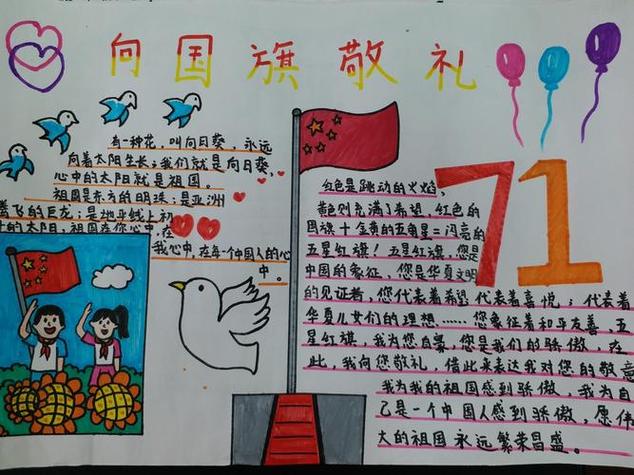 向国旗敬礼
有一种花，叫向日葵，永远
向着太阳生长；我们就是向日葵，
心中的太阳就是祖国。
祖国是东方的明珠；是亚洲
腾飞的巨龙；是地平线上初
升的太阳，祖国在你心中，在
我心中，在每一个中国人的心
中。
红色是跳动的火焰，
黄色则充满了希望，红色的
国旗十金黄的五角星＝闪亮的
五星红旗！五星红旗，您是
中国的象征，您是华夏文明
的见证者，您代表着希望 代表着喜悦；代表着
华夏儿女们的理想……您象征着和平友善，五
星红旗，我为您自豪，您是我们的骄傲，在
此，我向您敬礼，借此来表达我对您的敬意
我为我的祖国感到骄傲，我为自
己是一个中国人感到骄傲，愿伟
大的祖国永远繁荣昌盛。
71